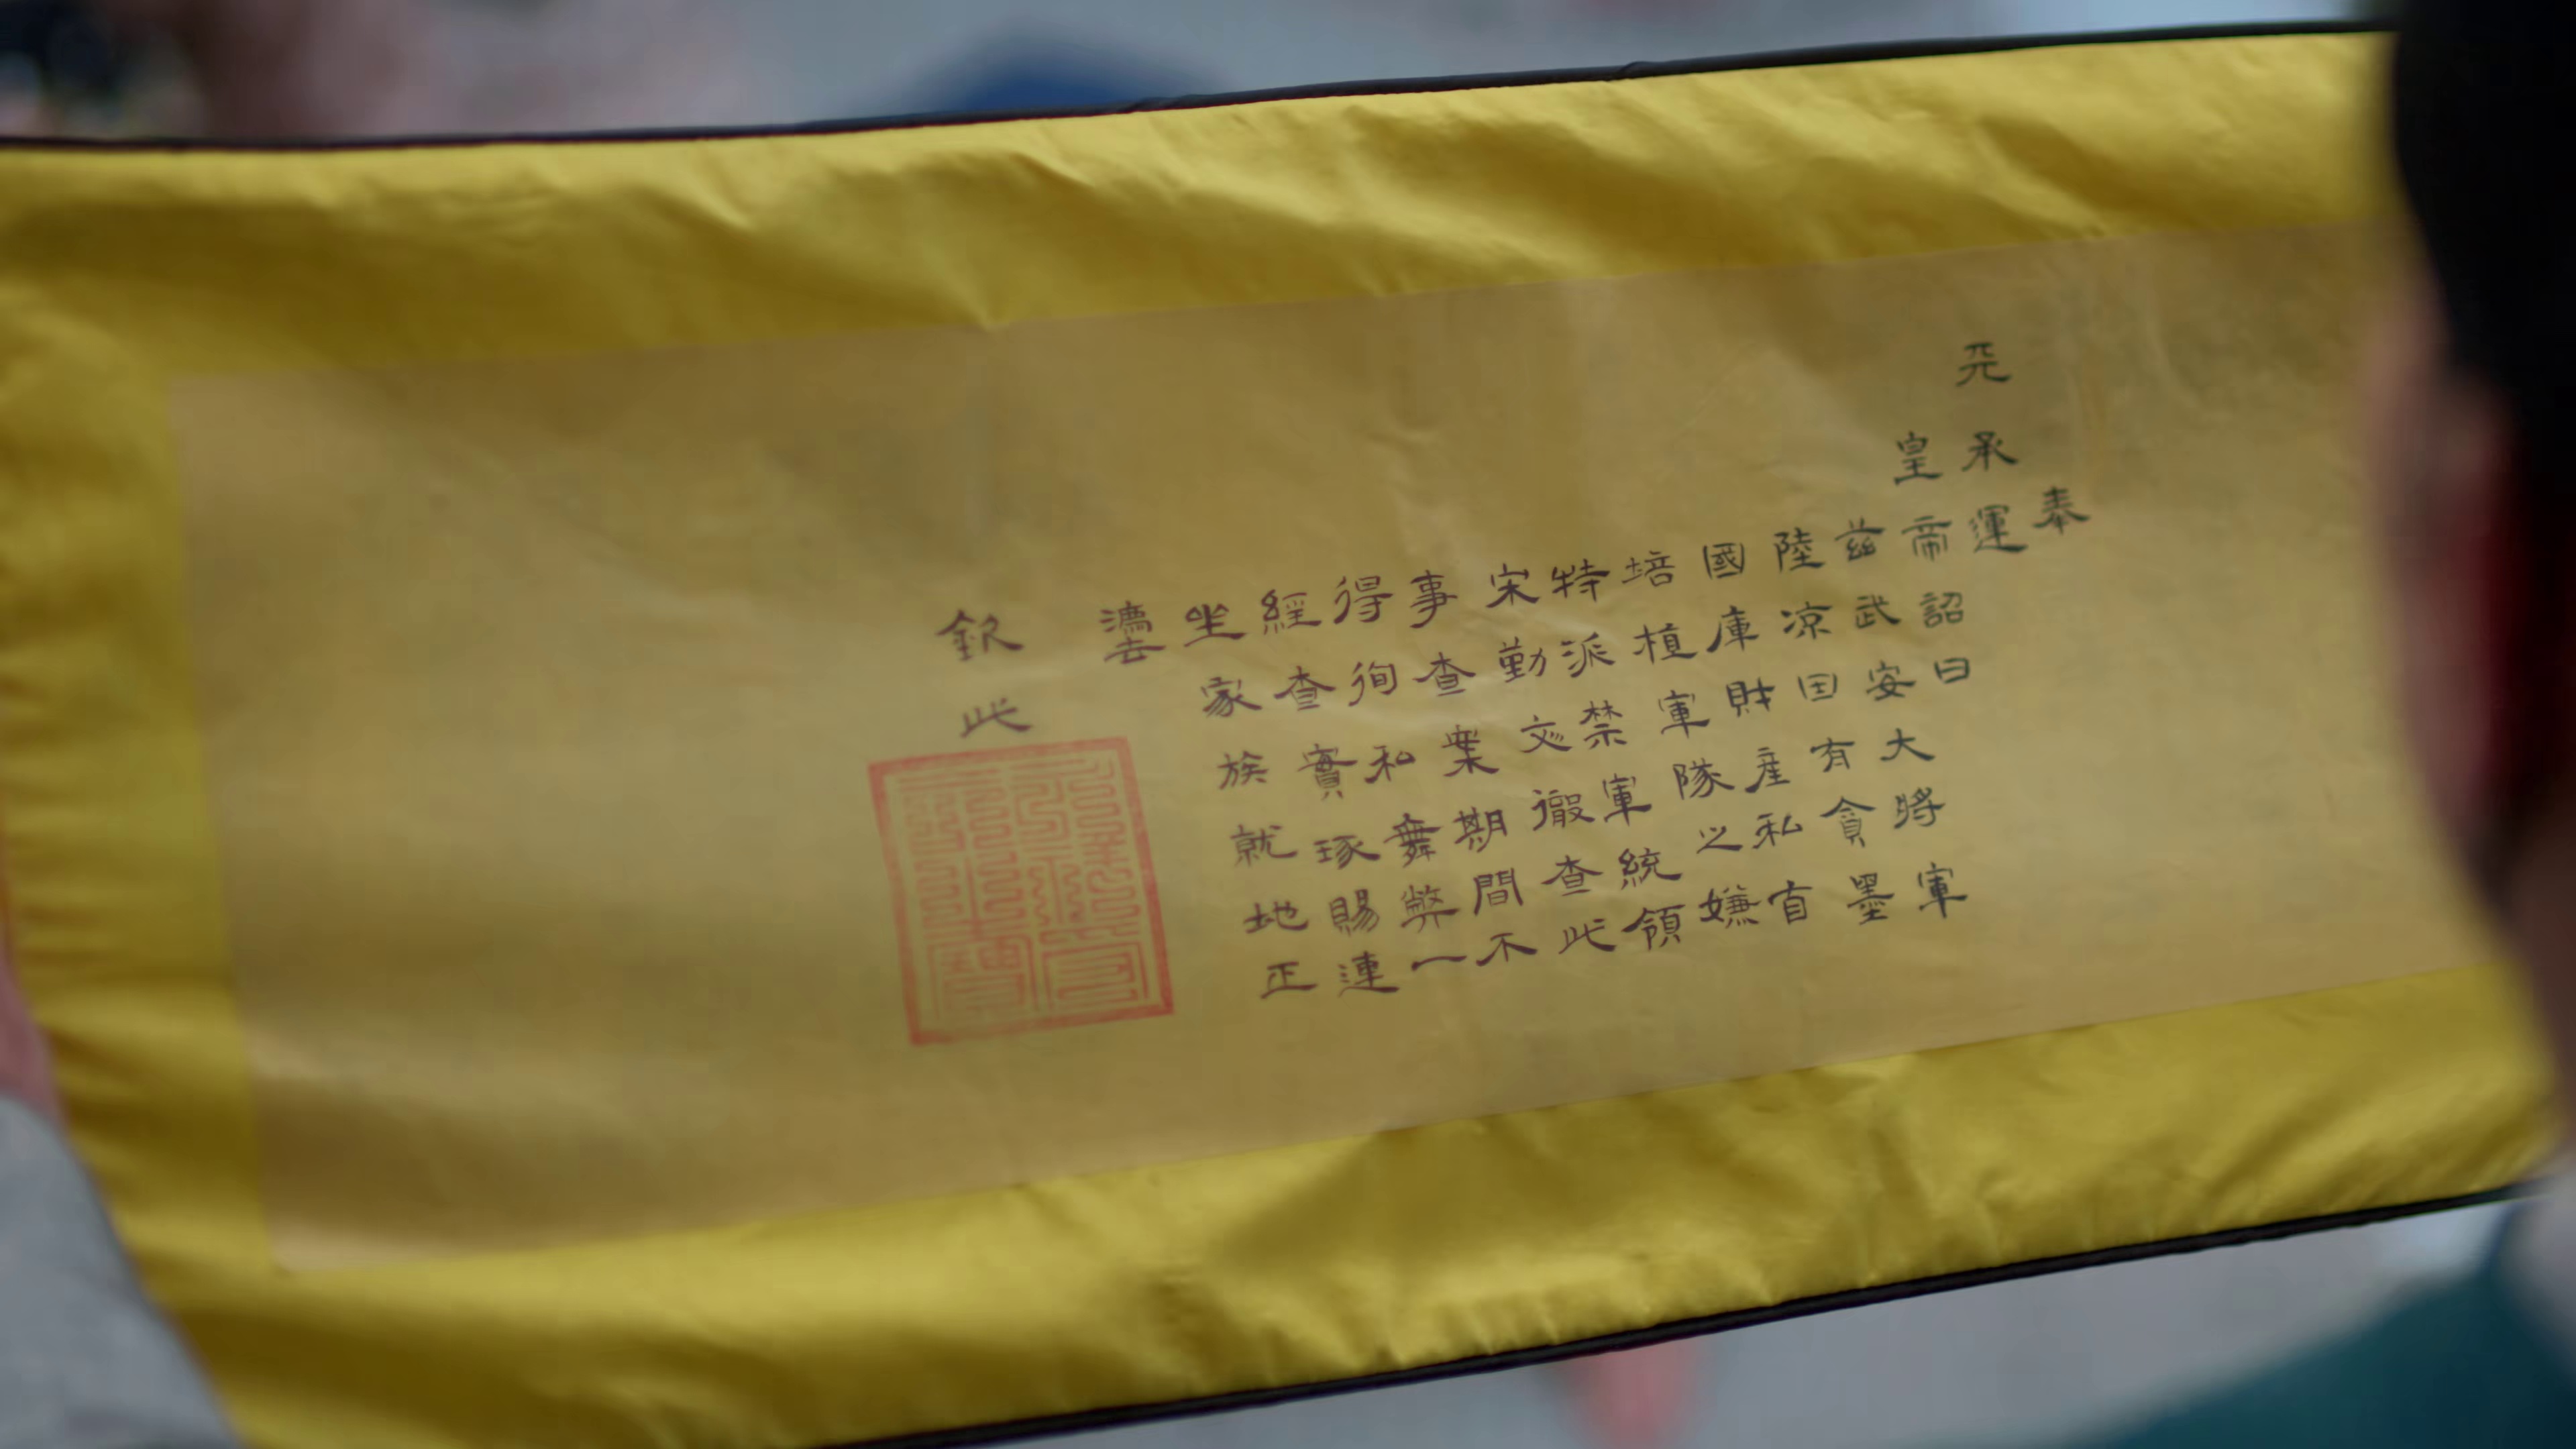 奉
天承運
皇帝詔曰
兹武安大將軍
陸凉田有貪墨
國庫財産私自
培植軍隊之嫌
特派禁軍統領
宋勤交徹查此
事查案期間不
得徇私舞弊一
經查實琢賜連
坐家族就地正
灋
欽此